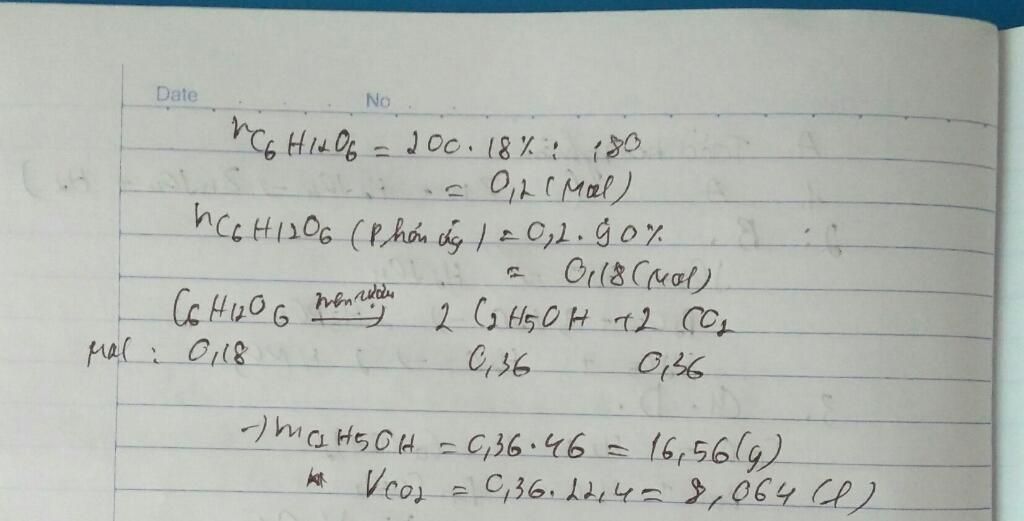 Date No
nC6H12O6 = 200.18% : 180
= 0,2 (mol)
nC6H12O6 (phản ứng) = 0,2.90%
= 0,18 (mol)
C6H12O6 men rượu → 2 C2H5OH + 2 CO2
mol : 0,18 0,36 0,36
→ mC2H5OH = 0,36.46 = 16,56 (g)
VCO2 = 0,36.22,4 = 8,064 (l)